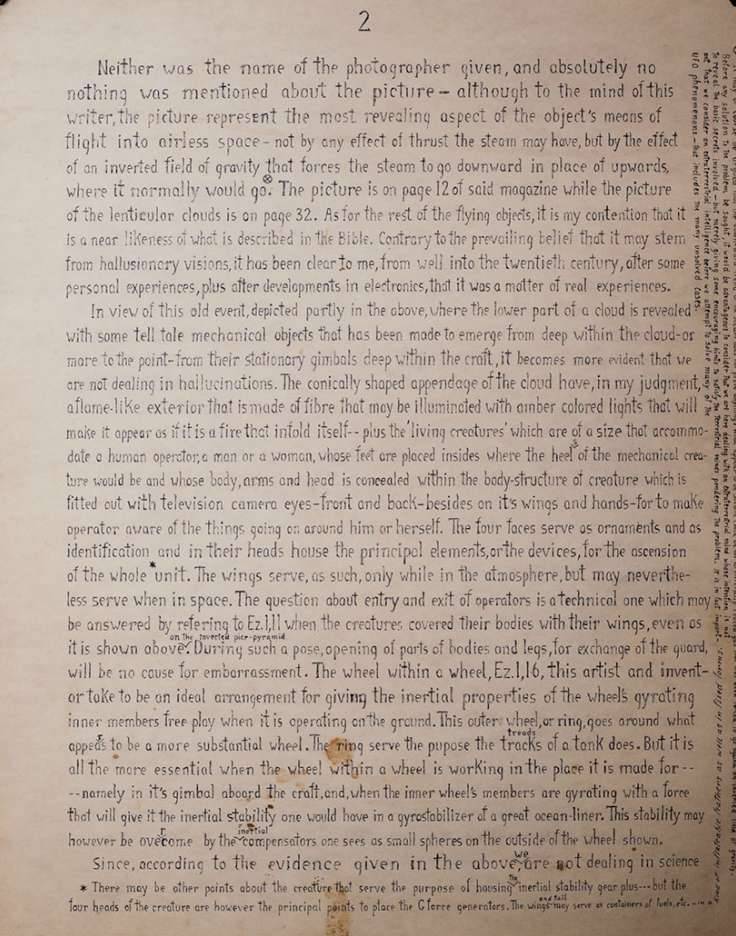 2
Neither was the name of the photographer given, and absolutely no
nothing was mentioned about the picture - although to the mind of this
writer, the picture represent the most revealing aspect of the object's means of
flight into airless space - not by any effect of thrust the steam may have, but by the effect
of an inverted field of gravity that forces the steam to go downward in place of upwards,
where it normally would go. ⊗ The picture is on page 12 of said magazine while the picture
of the lenticular clouds is on page 32. As for the rest of the flying objects, it is my contention that it
is a near likeness of what is described in the Bible. Contrary to the prevailing belief that it may stem
from hallusionary visions, it has been clear to me, from well into the twentieth century, after some
personal experiences, plus after developments in electronics, that it was a matter of real experiences.
In view of this old event, depicted partly in the above, where the lower part of a cloud is revealed
with some tell tale mechanical objects that has been made to emerge from deep within the cloud-or
more to the point-from their stationary gimbals deep within the craft, it becomes more evident that we
are not dealing in hallucinations. The conically shaped appendage of the cloud have, in my judgment,
a flame-like exterior that is made of fibre that may be illuminated with amber colored lights that will
make it appear as if it is a fire that infold itself-- plus the 'living creatures' which are of a size that accommo-
date a human operator, a man or a woman, whose feet are placed insides where the heels of the mechanical crea-
ture would be and whose body, arms and head is concealed within the body-structure of creature which is
fitted out with television camera eyes-front and back-besides on it's wings and hands-for to make
operator aware of the things going on around him or herself. The four faces serve as ornaments and as
identification and in their heads house the principal elements, or the devices, for the ascension
of the whole *unit. The wings serve, as such, only while in the atmosphere, but may neverthe-
less serve when in space. The question about entry and exit of operators is a technical one which may
be answered by refering to Ez.1,11 when the creatures covered their bodies with their wings, even as
on the inverted pice-pyramid
it is shown above. During such a pose, opening of parts of bodies and legs, for exchange of the guard,
will be no cause for embarrassment. The wheel within a wheel, Ez.1,16, this artist and invent-
or take to be an ideal arrangement for giving the inertial properties of the wheel's gyrating
inner members free play when it is operating on the ground. This outer wheel, or ring, goes around what
treads
appears to be a more substantial wheel. The ring serve the pupose the tracks of a tank does. But it is
all the more essential when the wheel within a wheel is working in the place it is made for--
--namely in it's gimbal aboard the craft, and, when the inner wheel's members are gyrating with a force
that will give it the inertial stability one would have in a gyrostabilizer of a great ocean-liner. This stability may
inertial
however be overcome by the compensators one sees as small spheres on the outside of the wheel shown.
Since, according to the evidence given in the above, we are not dealing in science
* There may be other points about the creature that serve the purpose of housing the inertial stability gear plus---but the
and tail
four heads of the creature are however the principal points to place the G force generators. The wings may serve as containers of fuels, etc.
UFO phenomenons - but includes the many unsolved cases.